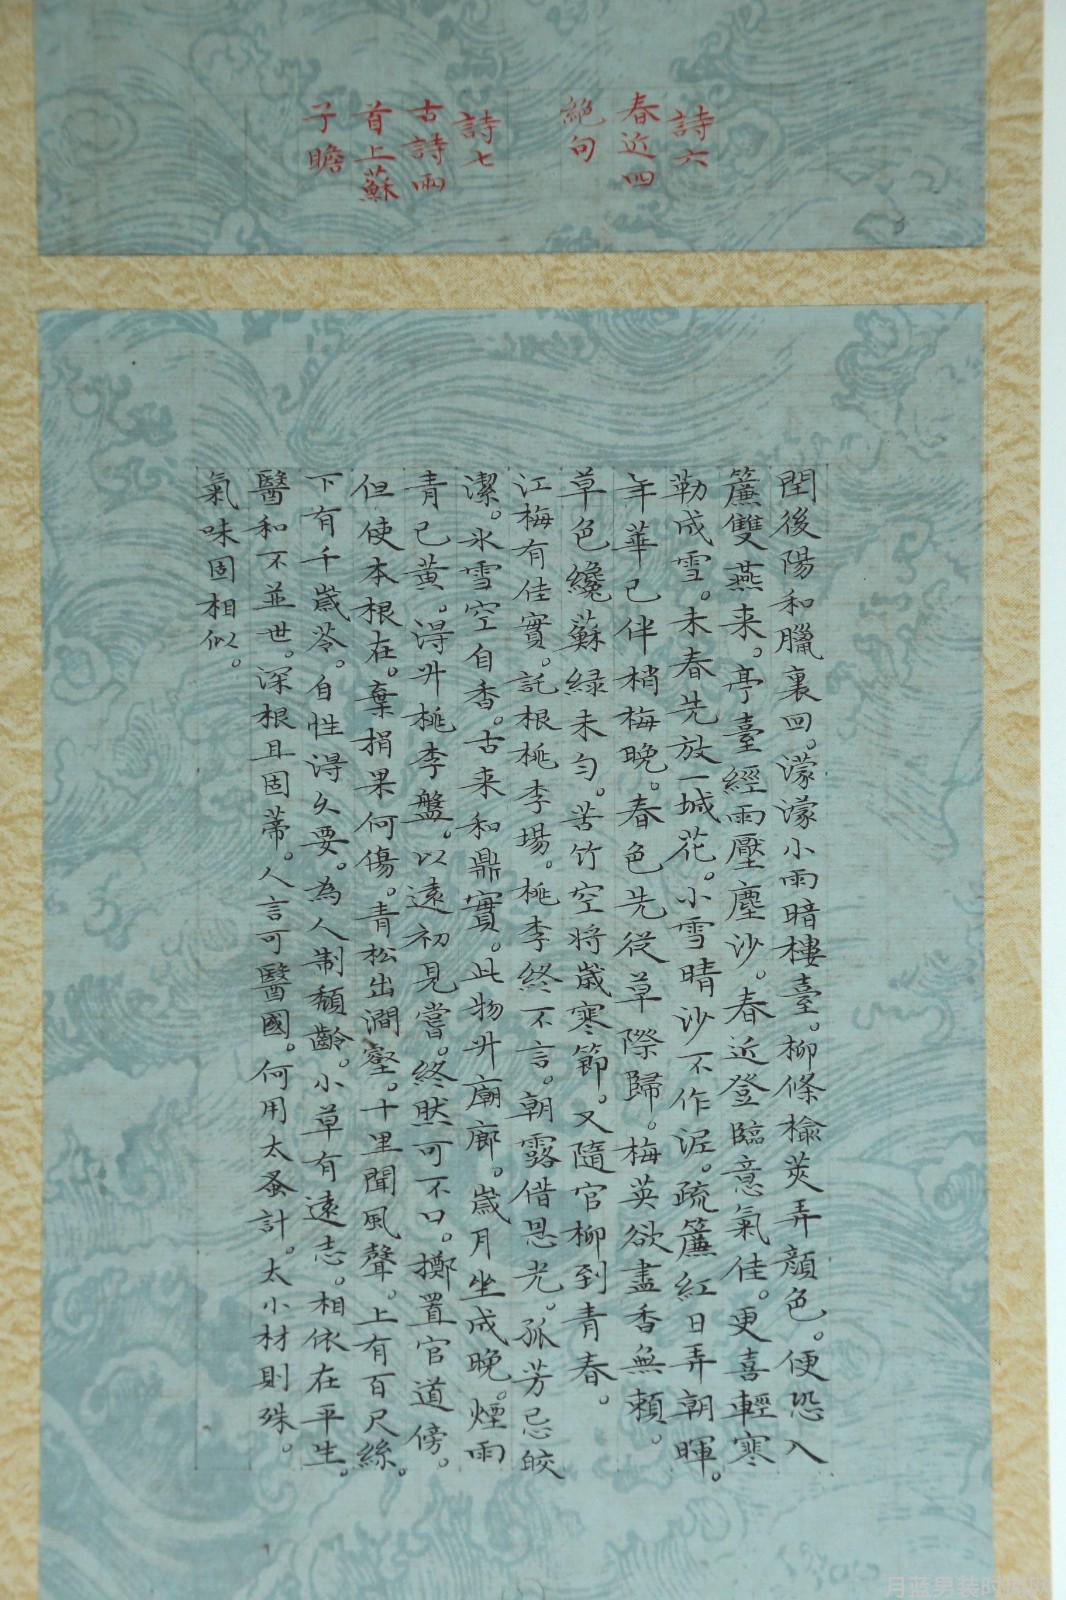 詩六
春近四
絶句
詩七
古詩兩
首上蘇
子瞻
閏後陽和臘裏回。濛濛小雨暗樓臺。柳條榆莢弄顔色。便恐入
簾雙燕来。亭臺經雨壓塵沙。春近登臨意氣佳。更喜輕寒
勒成雪。未春先放一城花。小雪晴沙不作泥。疏簾紅日弄朝暉。
年華已伴梢梅晚。春色先從草際歸。梅英欲盡香無賴。
草色纔蘇緑未匀。苦竹空將歲寒節。又隨官柳到青春。
江梅有佳實。託根桃李場。桃李終不言。朝露借恩光。孤芳忌皎
潔。氷雪空自香。古来和鼎實。此物升廟廊。歲月坐成晚。煙雨
青已黄。得升桃李盤。以遠初見嘗。終然可不口。擲置官道傍。
但使本根在。棄捐果何傷。青松出澗壑。十里聞風聲。上有百尺絲。
下有千歲苓。自性得久要。為人制頽齡。小草有遠志。相依在平生。
醫和不並世。深根且固蒂。人言可醫國。何用太蚤計。太小材則殊。
氣味固相似。
月蓝男装时